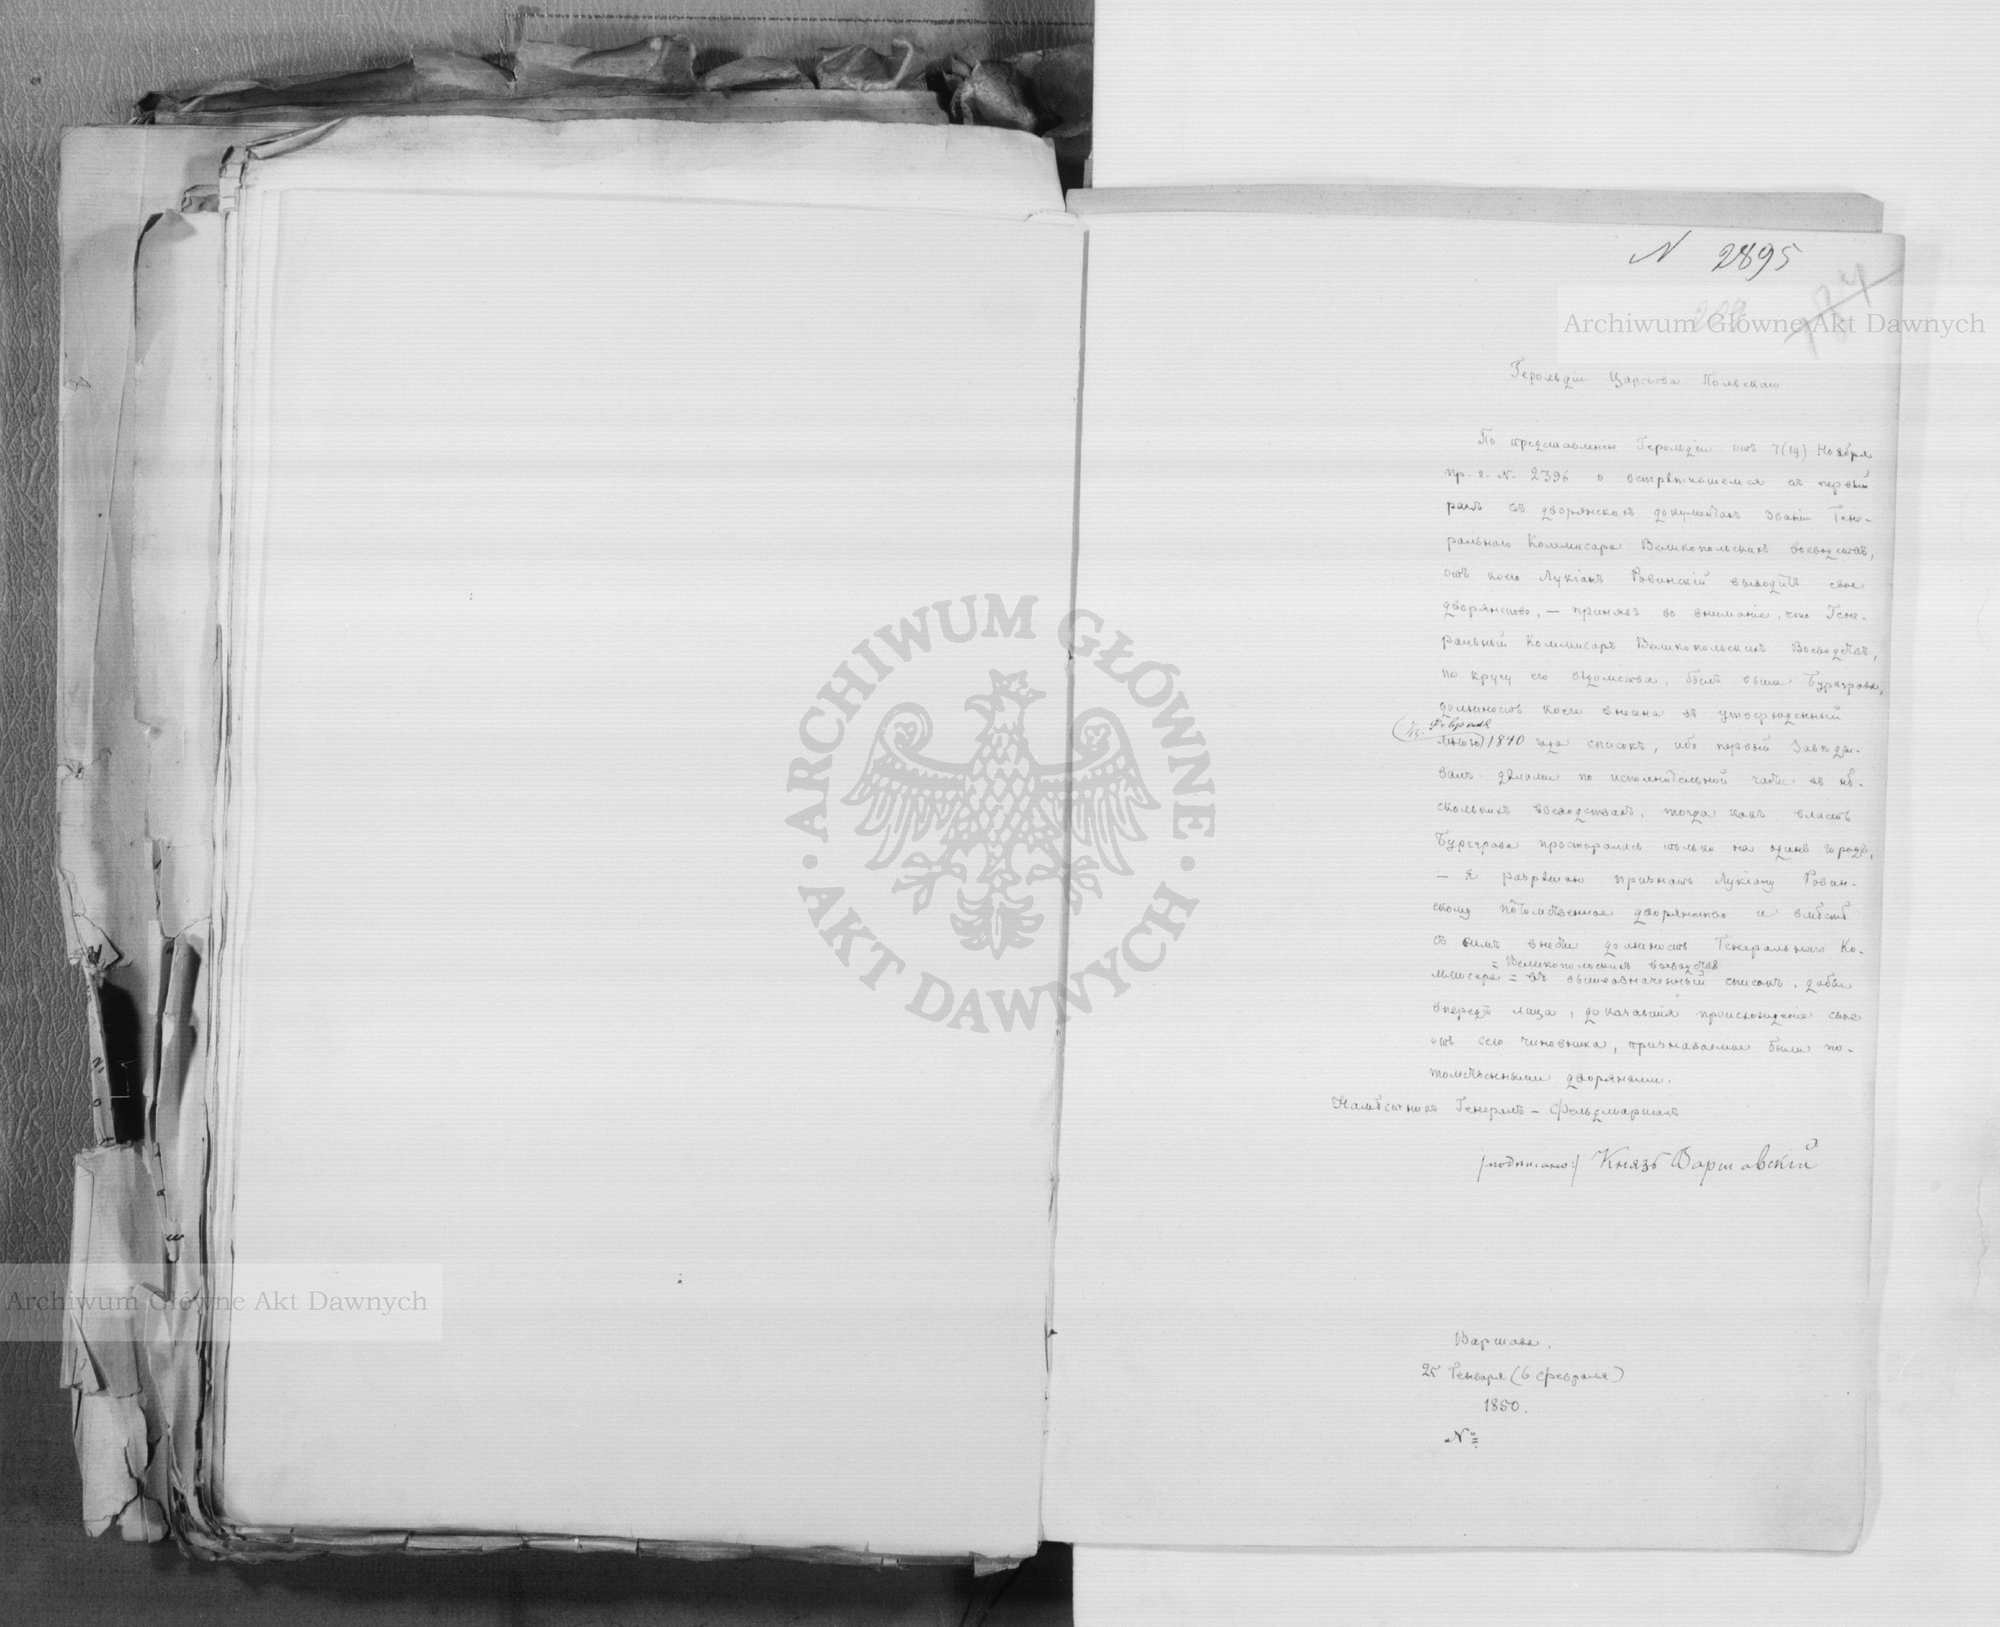 N 2895
184
Герольдіи Царства Польскаго
По представленію Герольдіи отъ 7 (19) Ноября
пр. г. N. 2396 о встрѣтившемся въ первый
разъ въ дворянскихъ документахъ званіи Гене-
ральнаго Коммисара Великопольскихъ воеводствъ,
отъ коего Лукіанъ Ровинскій выводитъ свое
дворянство, — принявъ во вниманіе, что Гене-
ральный Коммисаръ Великопольскихъ Воеводствъ,
по кругу его вѣдомства, былъ выше Бургграва,
должность коего внесена въ утвержденный
Февраля
1840 года списокъ, ибо первый завѣды-
валъ дѣлами по исполнительной части въ нѣ-
сколькихъ воеводствахъ, тогда какъ власть
Бургграва простиралась только на одинъ городъ,
— я разрѣшаю признать Лукіану Ровин-
скому потомственное дворянство и вмѣстѣ
съ симъ внести должность Генеральнаго Ко-
= Великопольскихъ воеводствъ
ммисара = въ вышеозначенный списокъ, дабы
впередъ лица, доказавшія происхожденіе свое
отъ сего чиновника, признаваемы были по-
томственными дворянами.
Намѣстникъ Генералъ — Фельдмаршалъ
/подписано:/ Князь Варшавскій
Варшава.
25 Генваря (6 Февраля)
1850.
№
Archiwum Główne Akt Dawnych
Archiwum Główne Akt Dawnych
ARCHIWUM GŁÓWNE
AKT DAWNYCH